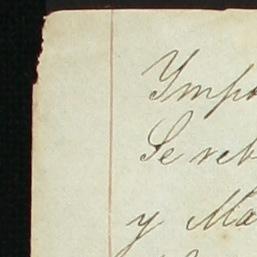 Impo
Se reb
y Ma